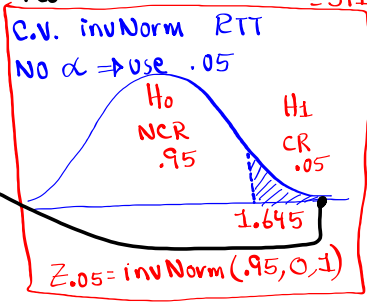 C.V. invNorm RTT
NO α ⇒ use .05
H₀
NCR
.95
H₁
CR
.05
1.645
Z.₀₅ = invNorm(.95, 0, 1)